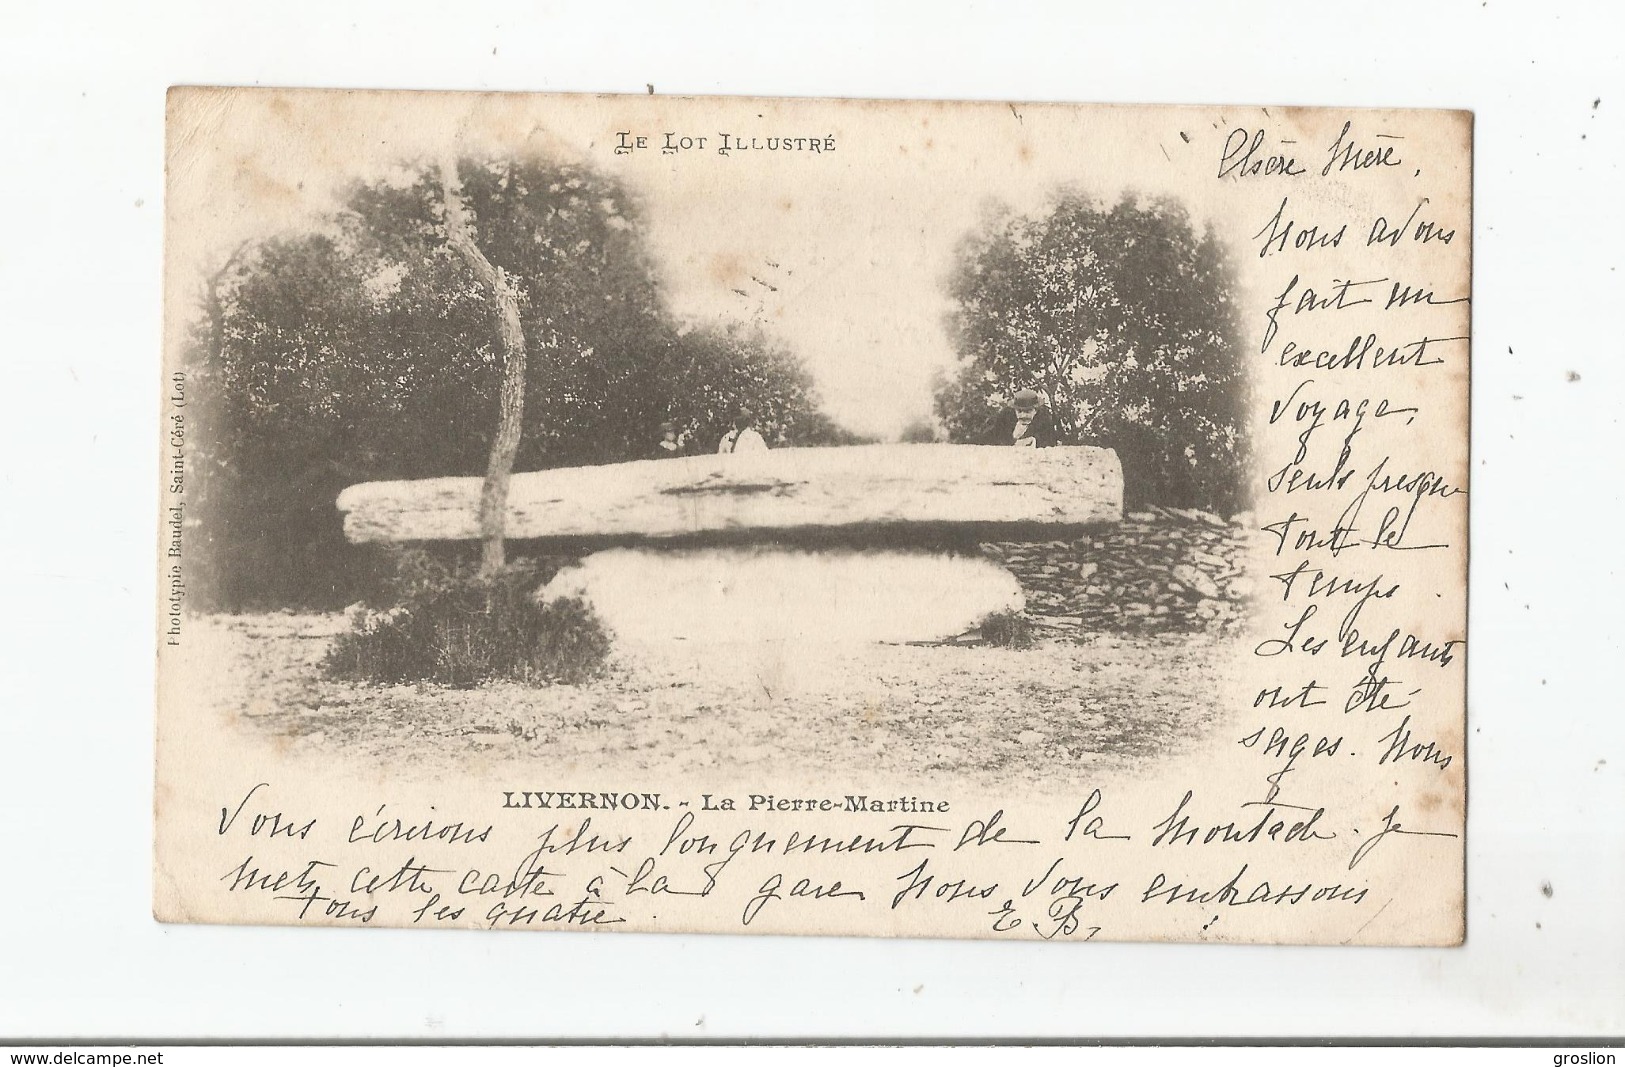 LE LOT ILLUSTRÉ
Chère Mère,
Nous avons
fait un
excellent
voyage,
seuls presque
tout le
temps.
Les enfants
ont été
sages. Nous
Phototypie Baudel, Saint-Céré (Lot)
LIVERNON. - La Pierre-Martine
vous écrirons plus longuement de la Montade. Je
mets cette carte à la gare. Nous vous embrassons
tous les quatre.
E. B.
www.delcampe.net
groslion